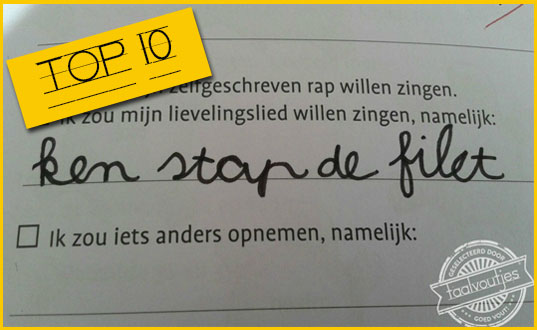 TOP 10
zelfgeschreven rap willen zingen.
Ik zou mijn lievelingslied willen zingen, namelijk:
ken stap de filet
Ik zou iets anders opnemen, namelijk:
GESELECTEERD DOOR
taalvoutjes
GOED VOUT!